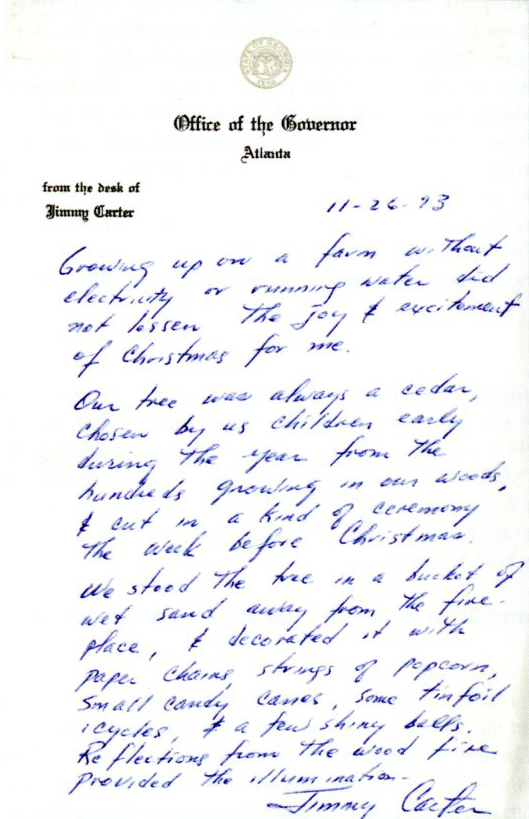 STATE OF GEORGIA
1776
Office of the Governor
Atlanta
from the desk of
Jimmy Carter
11-26-73
Growing up on a farm without
electricity or running water did
not lessen the joy & excitement
of Christmas for me.
Our tree was always a cedar,
chosen by us children early
during the year from the
hundreds growing in our woods,
& cut in a kind of ceremony
the week before Christmas.
We stood the tree in a bucket of
wet sand away from the fire-
place, & decorated it with
paper chains, strings of popcorn,
small candy canes, some tinfoil
icycles, & a few shiny balls.
Reflections from the wood fire
provided the illumination.
Jimmy Carter